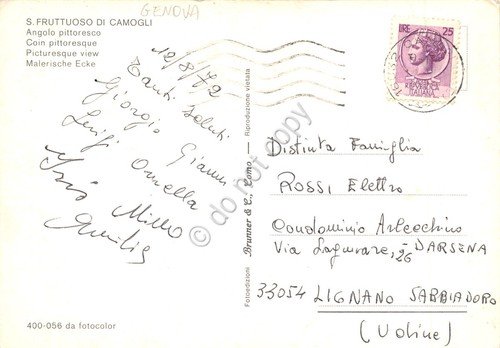 GENOVA
S. FRUTTUOSO DI CAMOGLI
Angolo pittoresco
Coin pittoresque
Picturesque view
Malerische Ecke
12/8/72
Tanti Saluti
Giorgio Gianni
Luigi Ornella
Iris Mirko
Emilia
400-056 da fotocolor
Fotoedizioni Brunner & C., Como - Riproduzione vietata
do not copy
LIRE 25
ITALIANA
Distinta Famiglia
ROSSI Elettro
Condominio Arlecchino
Via Lagunare, 126 DARSENA
33054 LIGNANO SABBIADORO
(Udine)